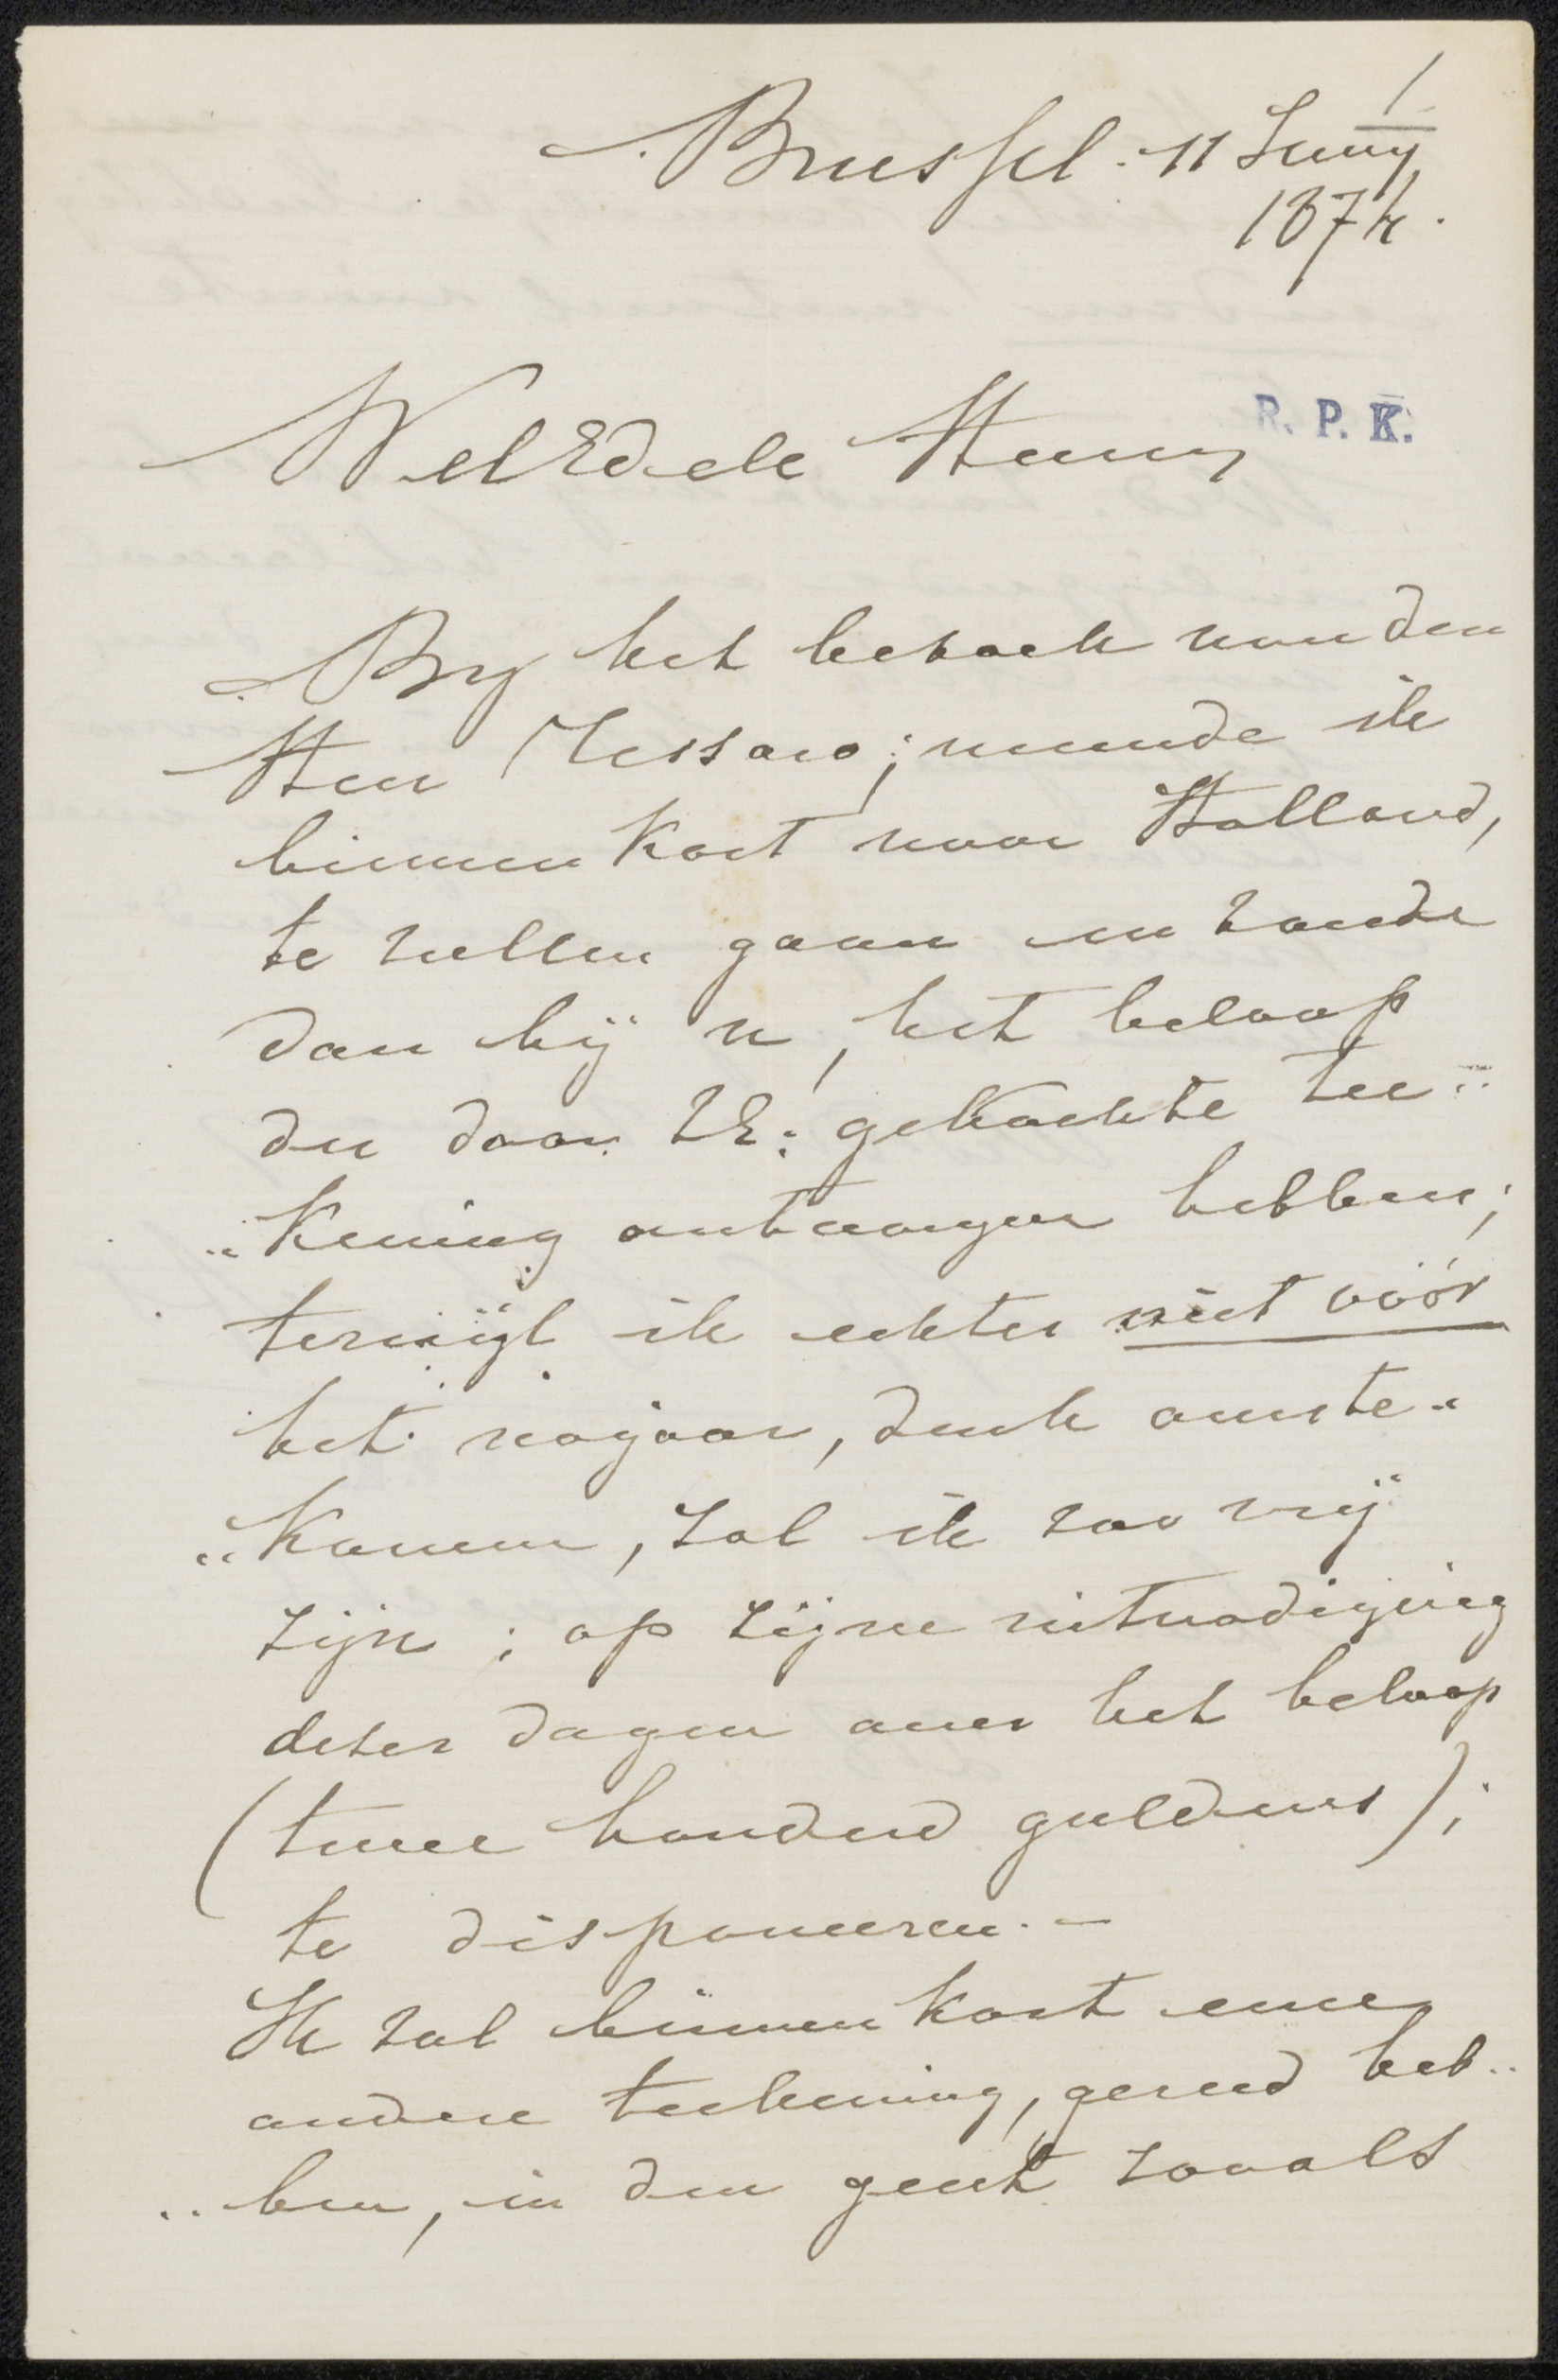 1
Brussel. 11 Juny
1874.
WelEdele Heer,
R. P. K.
By het bezoek van den
Heer Tessaro; meende ik
binnen kort naar Holland,
te zullen gaan en zoude
dan bij u, het beloop
der door ZE: gekochte tee"
"kening ontvangen hebben;
terwijl ik echter niet vóór
het najaar, denk overte"
"komen, zal ik zoo vrij
zijn; op zijne uitnodiging
dezer dagen over het beloop
(twee honderd guldens);
te disponeeren. –
Ik zal binnen kort eene
andere teekening, gereed heb"
"ben, in den geest zooals